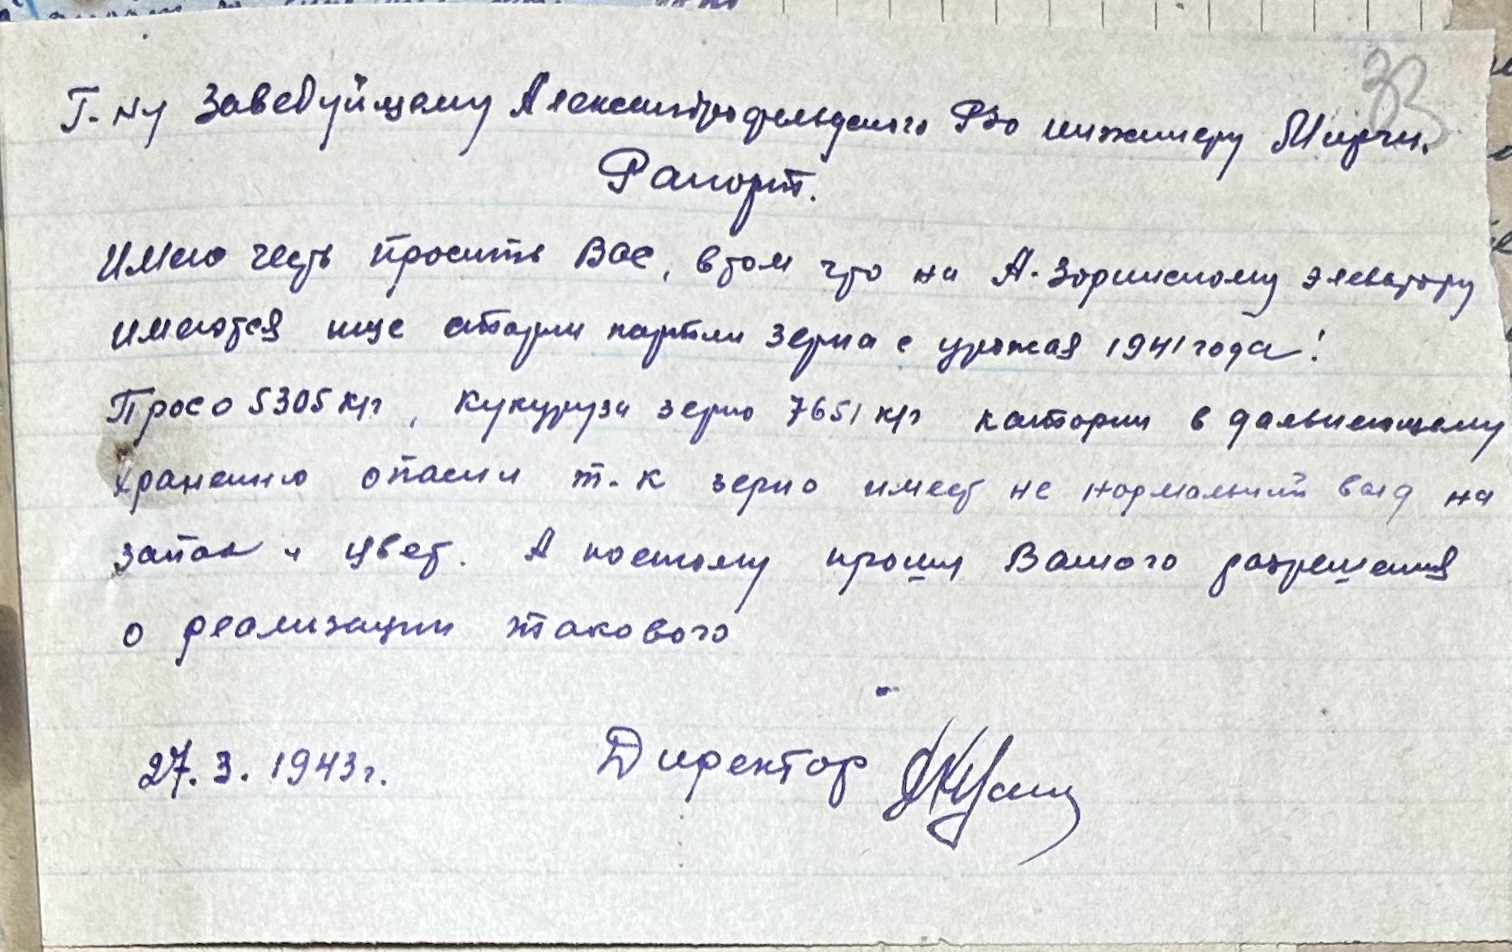 33
Г-ну Заведуйщему Александрофельдского РЭо инжинеру Мирчи.
Рапорт.
Имею честь просить Вас, втом что на А. Зоринскому элеватору
имеются ище старии партии зерна с урожая 1941 года!
Просо 5305 кгр, Кукурузи зерно 7651 кгр катории в дальнеющему
хранению опасни т.к зерно имеет не нормальний выд на
запах и цвет. А поетому прошу Вашого разрешения
о реализации такового
27.3.1943г. Директор